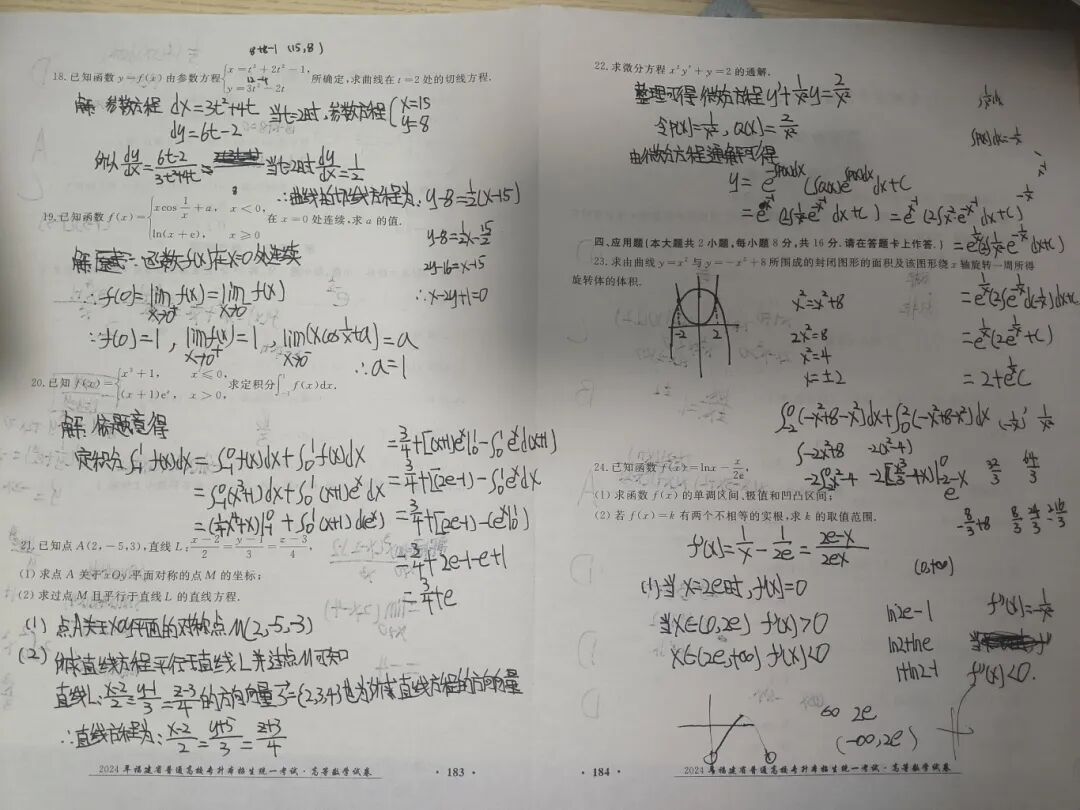 8+8-1 (15,8)
18.已知函数 y=f(x) 由参数方程{x=t²+2t²-1, y=3t²-2t 所确定,求曲线在 t=2 处的切线方程.
12-4
解: 参数方程 dx=3t²+4t 当t=2时,参数方程{x=15 y=8
dy=6t-2
所以 dy/dx=(6t-2)/(3t²+4t)= 当t=2时 dy/dx=1/2
8
∴曲线的切线方程为: y-8=1/2(x-15)
y-8=1/2x-15/2
2y-16=x-15
∴x-2y+1=0
19.已知函数 f(x)={xcos1/x+a, x<0, ln(x+e), x≥0 在 x=0 处连续,求 a 的值.
∵函数f(x)在x=0处连续
∴f(0)=lim x→0⁺ f(x)=lim x→0⁻ f(x)
∵f(0)=1, lim x→0⁺ f(x)=1, lim x→0⁻ (xcos1/x+a)=a
∴a=1
20.已知 f(x)={x³+1, x≤0, (x+1)eˣ, x>0, 求定积分∫₋₁¹ f(x)dx.
解: 依题意得
定积分∫₋₁¹ f(x)dx=∫₋₁⁰ f(x)dx+∫₀¹ f(x)dx
=∫₋₁⁰(x³+1)dx+∫₀¹(x+1)eˣdx
=(1/4x⁴+x)|₋₁⁰+∫₀¹(x+1)deˣ
=3/4+[(x+1)eˣ|₀¹-∫₀¹eˣd(x+1)]
=3/4+[(2e-1)-∫₀¹eˣdx
=3/4+[(2e-1)-(eˣ|₀¹)
=3/4+2e-1-e+1
=3/4+e
21.已知点 A(2,-5,3),直线 L:(x-2)/2=(y-1)/3=(z-3)/4,
(1)求点 A 关于 xOy 平面对称的点 M 的坐标;
(2)求过点 M 且平行于直线 L 的直线方程.
(1) 点A关于xOy平面的对称点M(2,-5,-3)
(2) 所求直线方程平行于直线L并过点M可知
直线L:(x-2)/2=(y-1)/3=(z-3)/4的方向向量s=(2,3,4)也为所求直线方程的方向向量
∴直线方程为:(x-2)/2=(y+5)/3=(z+3)/4
2024 年福建省普通高校专升本招生统一考试·高等数学试卷
·183·
22.求微分方程 x²y′+y=2 的通解.
整理可得微分方程y′+1/x²y=2/x²
令P(x)=1/x², Q(x)=2/x²
由微分方程通解可得
y=e^(-∫P(x)dx)(∫Q(x)e^(∫P(x)dx)dx+C
四、应用题(本大题共 2 小题,每小题 8 分,共 16 分.请在答题卡上作答.)
=e^(1/x)(2∫e^(-1/x)d(-1/x)dx+C
=e^(1/x)(2e^(-1/x)+C)
=2+e^(1/x)C
23.求由曲线 y=x² 与 y=-x²+8 所围成的封闭图形的面积及该图形绕 x 轴旋转一周所得
旋转体的体积.
-2 2
x²=x²+8
2x²=8
x²=4
x=±2
∫₋₂⁰(-x²+8-x²)dx+∫₀²(-x²+8-x²)dx
∫-2x²+8 -2(x²-4)
24.已知函数 f(x)=lnx-x/2e,
(1)求函数 f(x) 的单调区间、极值和凹凸区间;
(2)若 f(x)=k 有两个不相等的实根,求 k 的取值范围.
f′(x)=1/x-1/2e=(2e-x)/2ex
(0,+∞)
(1)当x=2e时, f′(x)=0
当x∈(0,2e) f′(x)>0
x∈(2e,+∞) f′(x)<0
ln2e-1
ln2+lne
1+ln2-1
f″(x)=-1/x²
f″(x)<0.
2e
(-∞,2e)
·184·
2024 年福建省普通高校专升本招生统一考试·高等数学试卷